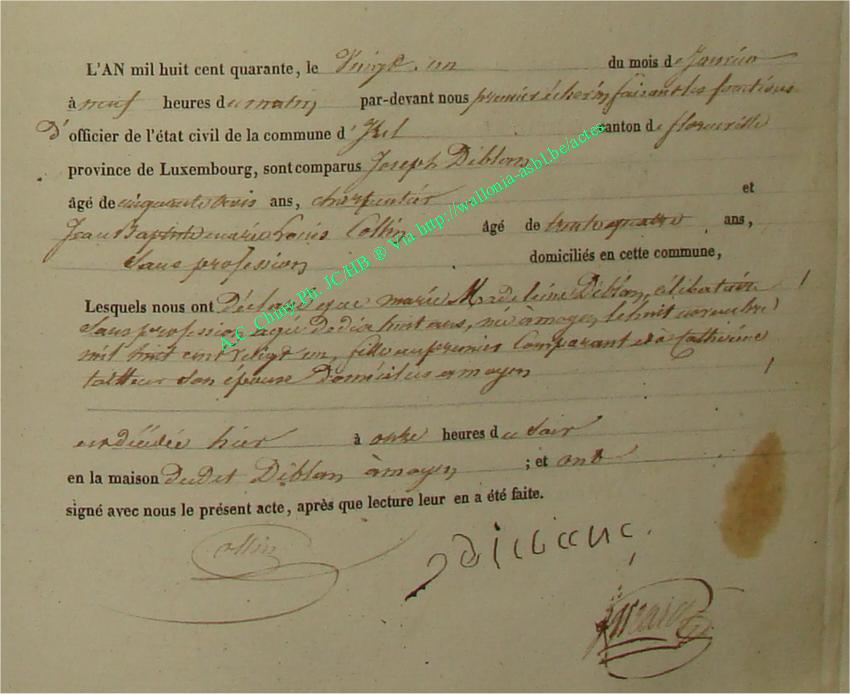 L'AN mil huit cent quarante, le Vingt un du mois de Janvier
à neuf heures du matin par-devant nous premier échevin faisant les fonctions
d' officier de l'état civil de la commune d'Izel canton de florenville
province de Luxembourg, sont comparus Joseph Diblan
âgé de cinquante trois ans, charpentier et
Jean Baptiste marie Louis Collin âgé de trente quatre ans,
Sans profession domiciliés en cette commune,
Lesquels nous ont Déclaré que marie Madeleine Diblan, célibataire
Sans profession agée de dix huit ans, née a moyen, le huit novembre
mil huit cent vingt un, fille au premier Comparant et à Catherine
son épouse Domiciliés a moyen
est décédée hier à onze heures du Soir
en la maison dudit Diblan à moyen ; et ont
signé avec nous le présent acte, après que lecture leur en a été faite.
Collin
A.C. Chiny Ph. JC.HB ® Via http://wallonia-asbl.be/actes